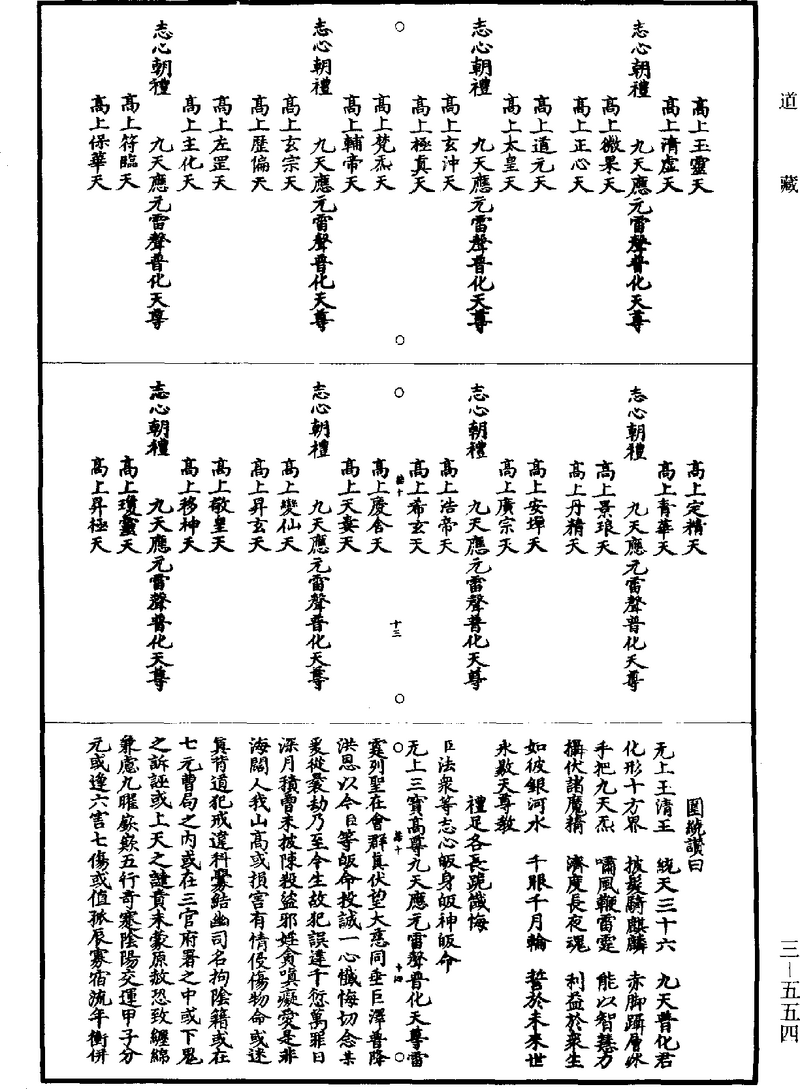 道藏
三—五五四
高上玉靈天
高上清虛天
志心朝禮 九天應元雷聲普化天尊
高上微果天
高上正心天
高上道元天
高上太皇天
志心朝禮 九天應元雷聲普化天尊
高上玄沖天
高上極真天
高上梵炁天
高上輔帝天
志心朝禮 九天應元雷聲普化天尊
高上玄宗天
高上歷偏天
高上左罡天
高上主化天
志心朝禮 九天應元雷聲普化天尊
高上符臨天
高上保華天
高上定精天
高上青華天
志心朝禮 九天應元雷聲普化天尊
高上景琅天
高上丹精天
高上安墀天
高上廣宗天
志心朝禮 九天應元雷聲普化天尊
高上浩帝天
高上希玄天
高上慶舍天
高上天婁天
志心朝禮 九天應元雷聲普化天尊
高上變仙天
高上昇玄天
高上敬皇天
高上移神天
志心朝禮 九天應元雷聲普化天尊
高上瓊靈天
高上昇極天
十三
圍繞讚曰
无上玉清王 統天三十六 九天普化君
化形十方界 披髮騎麒麟 赤脚躡層氷
手把九天炁 嘯風鞭雷霆 能以智慧力
攝伏諸魔精 濟度長夜魂 利益於衆生
如彼銀河水 千眼千月輪 誓於未來世
永敭天尊教
禮足各長跪懺悔
臣法衆等志心皈身皈神皈命
无上三寶高尊九天應元雷聲普化天尊雷
霆列聖在會群真伏望大慈同垂巨澤普降
洪恩以今臣等皈命投誠一心懺悔切念某
爰從曩劫乃至今生故犯誤違千愆萬罪日
深月積曾未披陳殺盜邪婬貪嗔癡愛是非
海闊人我山高或損害有情侵傷物命或迷
真背道犯戒違科釁結幽司名拘陰籍或在
七元曹局之內或在三官府署之中或下鬼
之訴誣或上天之譴責未蒙原赦恐致纏綿
兼慮九曜嶔崟五行奇蹇陰陽交運甲子分
元或逢六害七傷或值孤辰寡宿流年衝併
十四